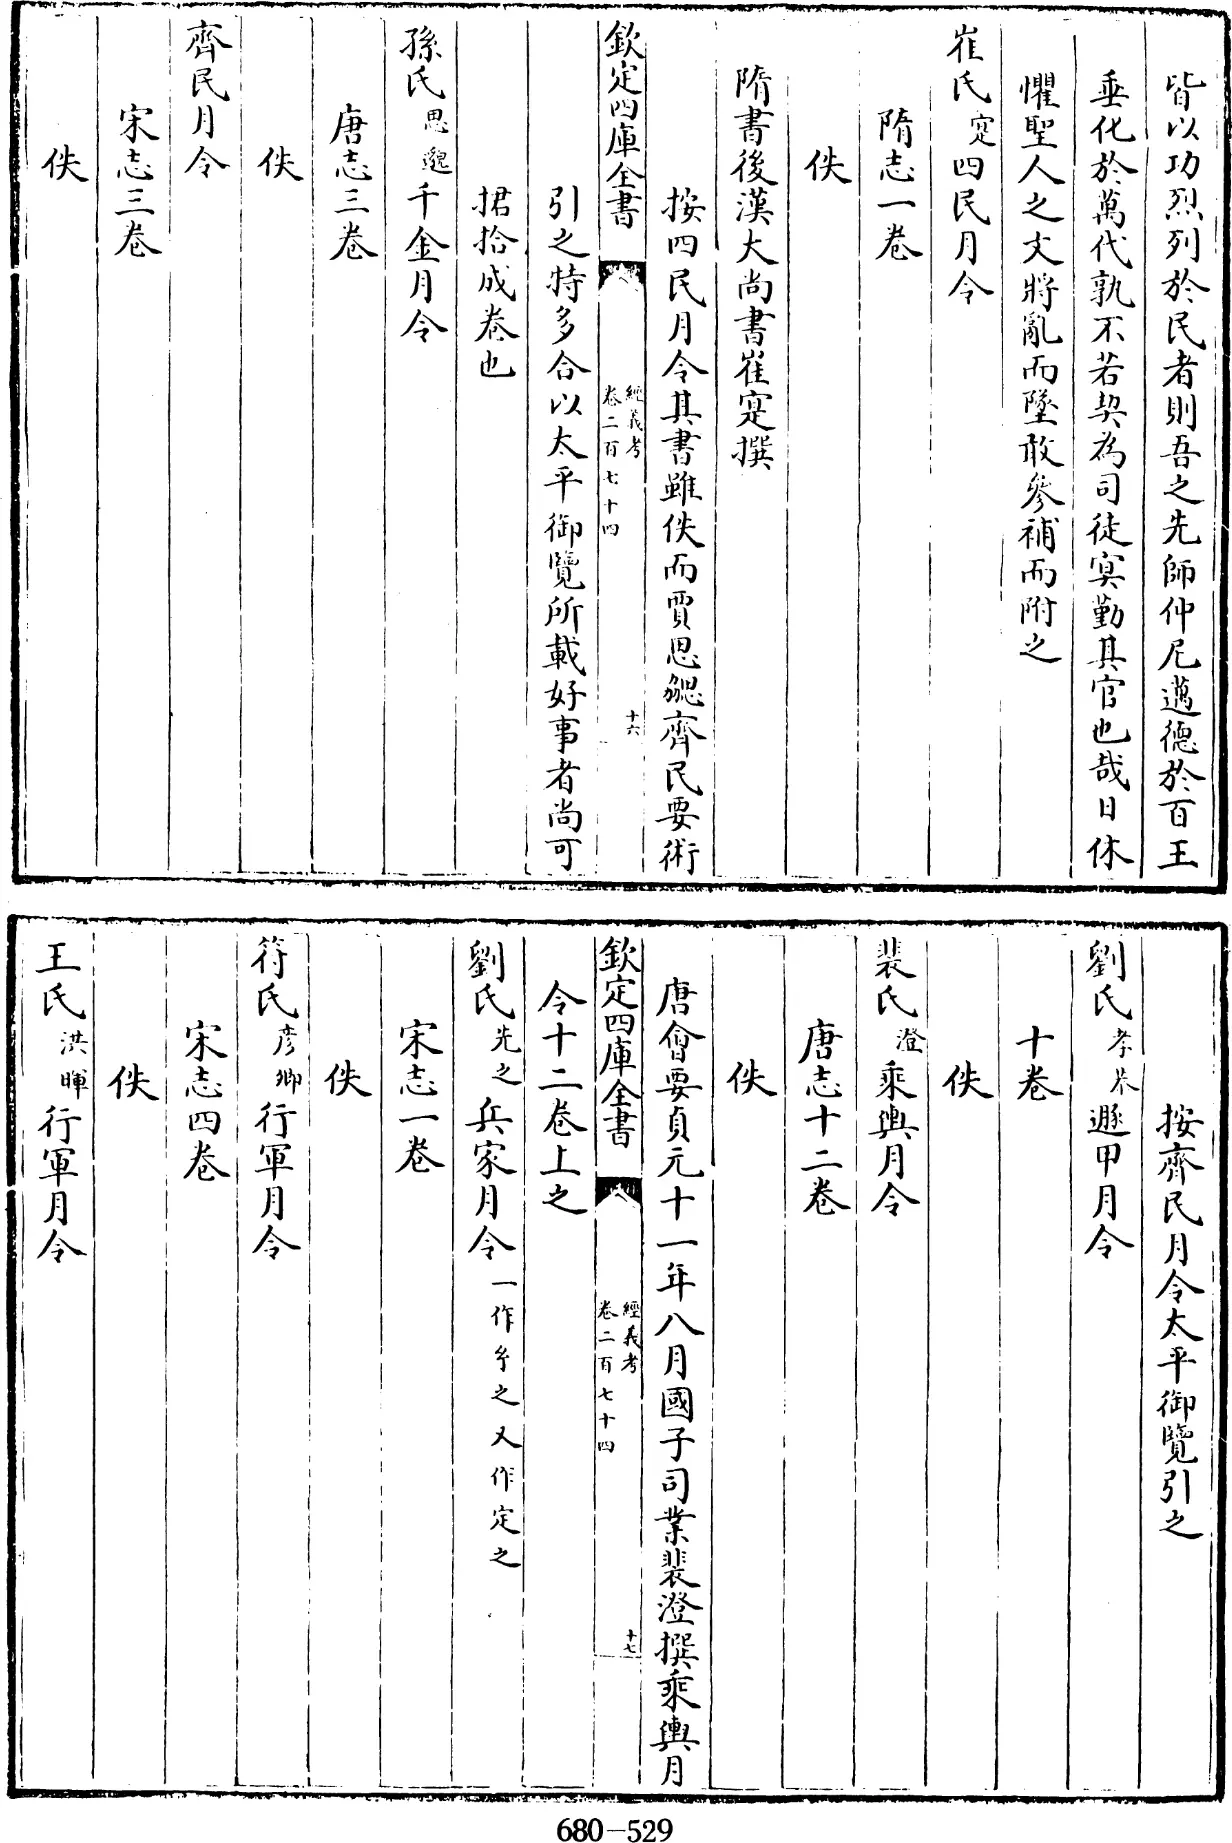 皆以功烈列於民者則吾之先師仲尼邁德於百王
垂化於萬代孰不若契為司徒冥勤其官也哉日休
懼聖人之文將亂而墜敢參補而附之
崔氏寔四民月令
隋志一卷
佚
隋書後漢大尚書崔寔撰
按四民月令其書雖佚而賈思勰齊民要術
欽定四庫全書
經義考
卷二百七十四
十六
引之特多合以太平御覽所載好事者尚可
捃拾成卷也
孫氏思邈千金月令
唐志三卷
佚
齊民月令
宋志三卷
佚
按齊民月令太平御覽引之
劉氏孝恭遯甲月令
十卷
佚
裴氏澄乘輿月令
唐志十二卷
佚
唐會要貞元十一年八月國子司業裴澄撰乘輿月
欽定四庫全書
經義考
卷二百七十四
十七
令十二卷上之
劉氏先之兵家月令一作玄之又作定之
宋志一卷
佚
符氏彥卿行軍月令
宋志四卷
佚
王氏洪暉行軍月令
680-529